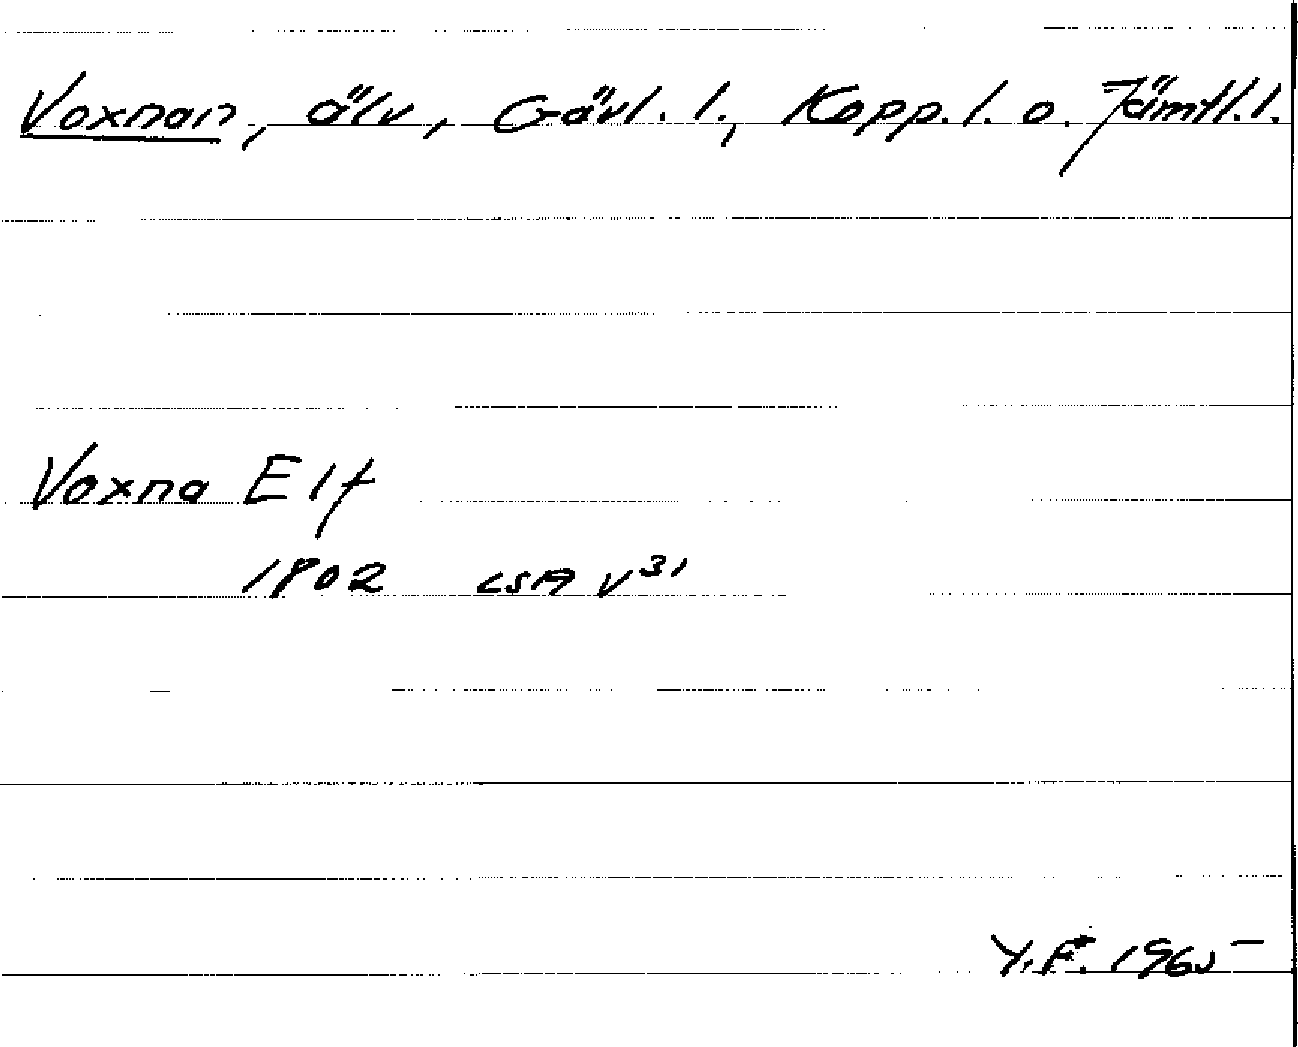 Voxnan, älv, Gävl. l., Kopp. l. o. Jämtl. l.
Voxna Elf
1802 LSA V 31
Y.F. 1965